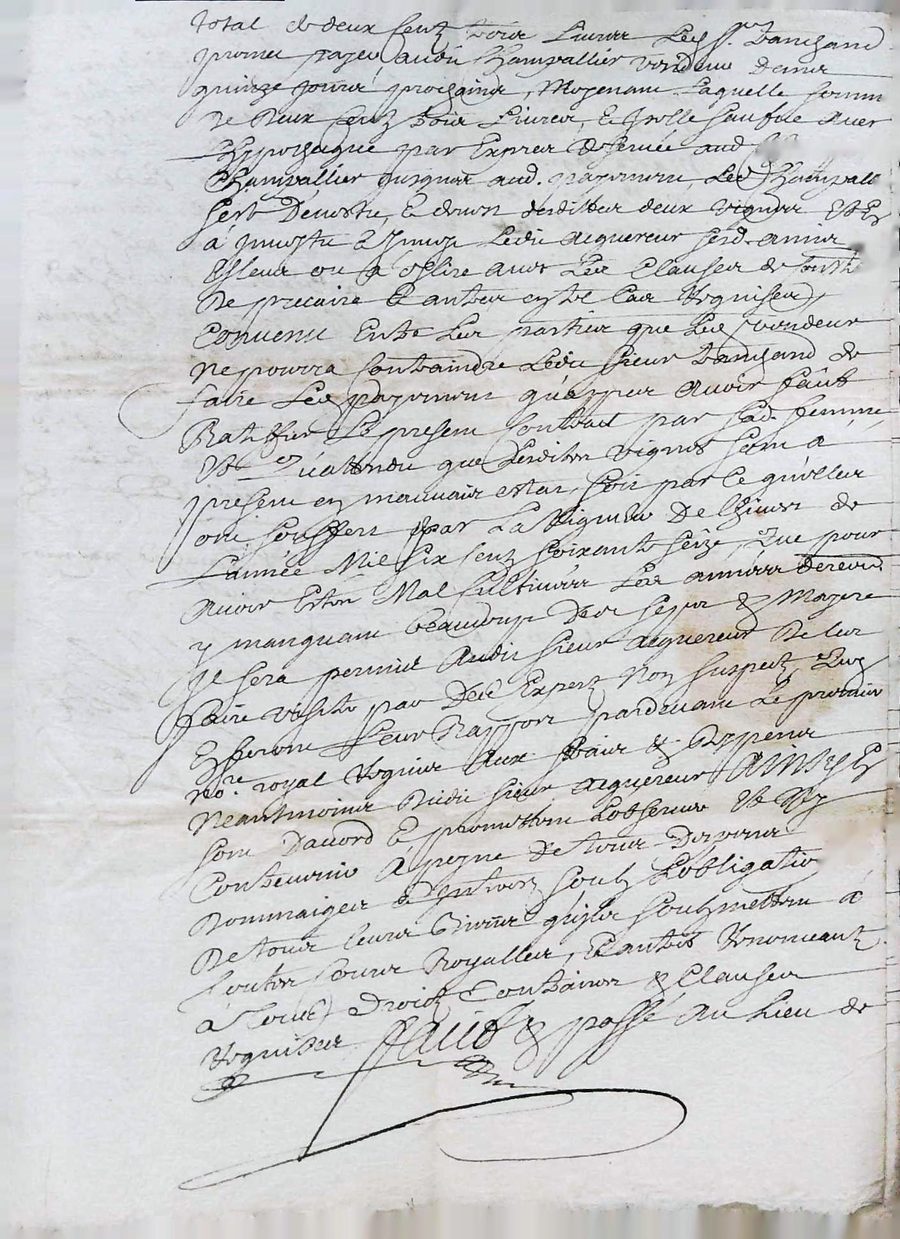 total de deux cent trois Livres Led. Sr.
promet payer audit Champvallier vendeur dans
quinze jours prochains, Moyenant Laquelle somme
De Deux cent trois Livres, et Icelle sauf ave
Hypotheque par Expres Reservée aud.
Champvallier jusques aud. payement, Led. Champvall
sest Devestu, & desdites deux vignes
à Investu & Ledit acquereur ses amis
Esleus ou à eslire avec Les Clauses de
De precaire & autres en tel cas Requises,
Convenu Entre Les parties que Led. vendeur
Ne pourra Contraindre Ledit Sieur de
faire Led. payement quapres avoir faict
Ratiffier Le present Contract par sad. femme
attendu que Lesdites vignes sont à
present en mauvais estat, soit par ce quelles
ont souffert par La Rigueur De Lhiver de
L'année Mil six cent soixante seize, que pour
avoir Esté Mal Cultivées Les années
y manquant beaucoup De seps &
Il sera permis Audit sieur acquereur De les
faire visiter par Des Expertz Non suspectz,
feront Leur Rapport pardevant Le
Nore. royal Requis Aux frais & Despens
Neantmoins Dudit sieur acquereur AINSY
sont Daccord & promettent Lobserver
Contrevenir À peyne De tous Despens
Dommaiges & Interestz soubz Lobligation
De tous leurs Biens quils soubzmettent à
toutes Cours Royalles, & autres Renonceant
à tous Droictz Contraires & Clauses
Requises Faict & passé au Lieu de